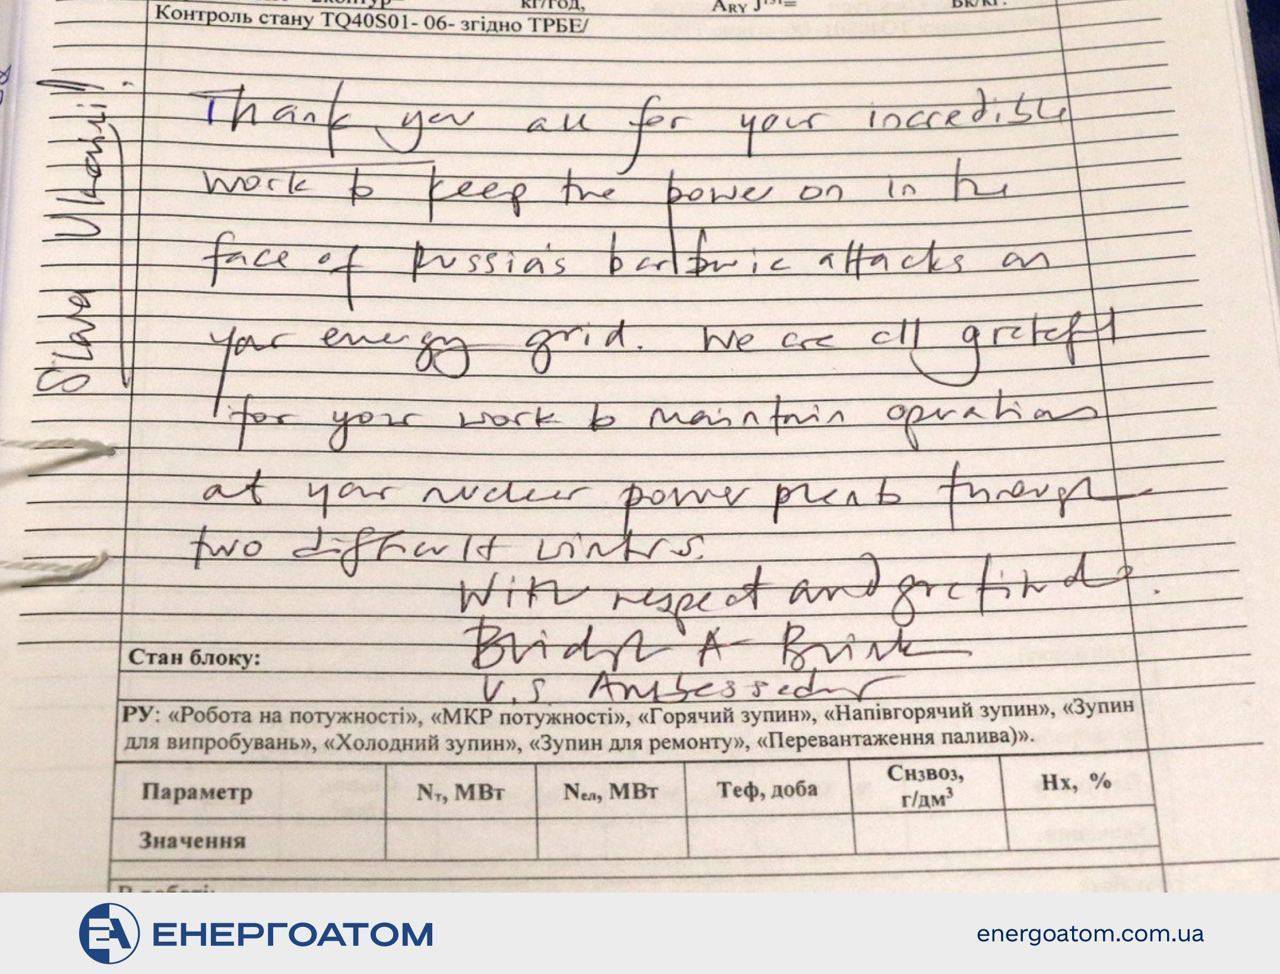 кг/год,
Контроль стану TQ40S01- 06- згідно ТРБЕ/
Slava Ukraini!
Thank you all for your incredible
work to keep the power on in the
face of Russia's barbaric attacks on
your energy grid. We are all grateful
for your work to maintain operations
at your nuclear power plants through
two difficult winters.
With respect and gratitude.
Bridget A. Brink
U.S. Ambassador
Стан блоку:
РУ: «Робота на потужності», «МКР потужності», «Горячий зупин», «Напівгорячий зупин», «Зупин
для випробувань», «Холодний зупин», «Зупин для ремонту», «Перевантаження палива)».
Параметр Nт, МВт Nел, МВт Теф, доба Снзвоз, г/дм³ Нх, %
Значення
ЕНЕРГОАТОМ
energoatom.com.ua